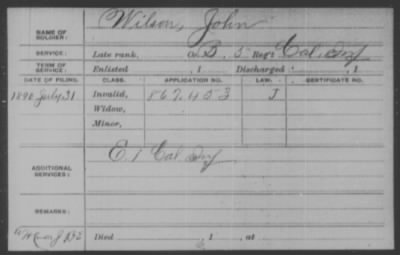 NAME OF SOLDIER: Wilson, John
SERVICE: Late rank, Co. B, 5 Reg't Cal. Inf
TERM OF SERVICE: Enlisted , 1 Discharged , 1
DATE OF FILING. CLASS. APPLICATION NO. LAW. CERTIFICATE NO.
1890 July 31 Invalid, 867.453 J
Widow,
Minor,
ADDITIONAL SERVICES: E. 1 Cal Inf
REMARKS:
Died , 1 , at